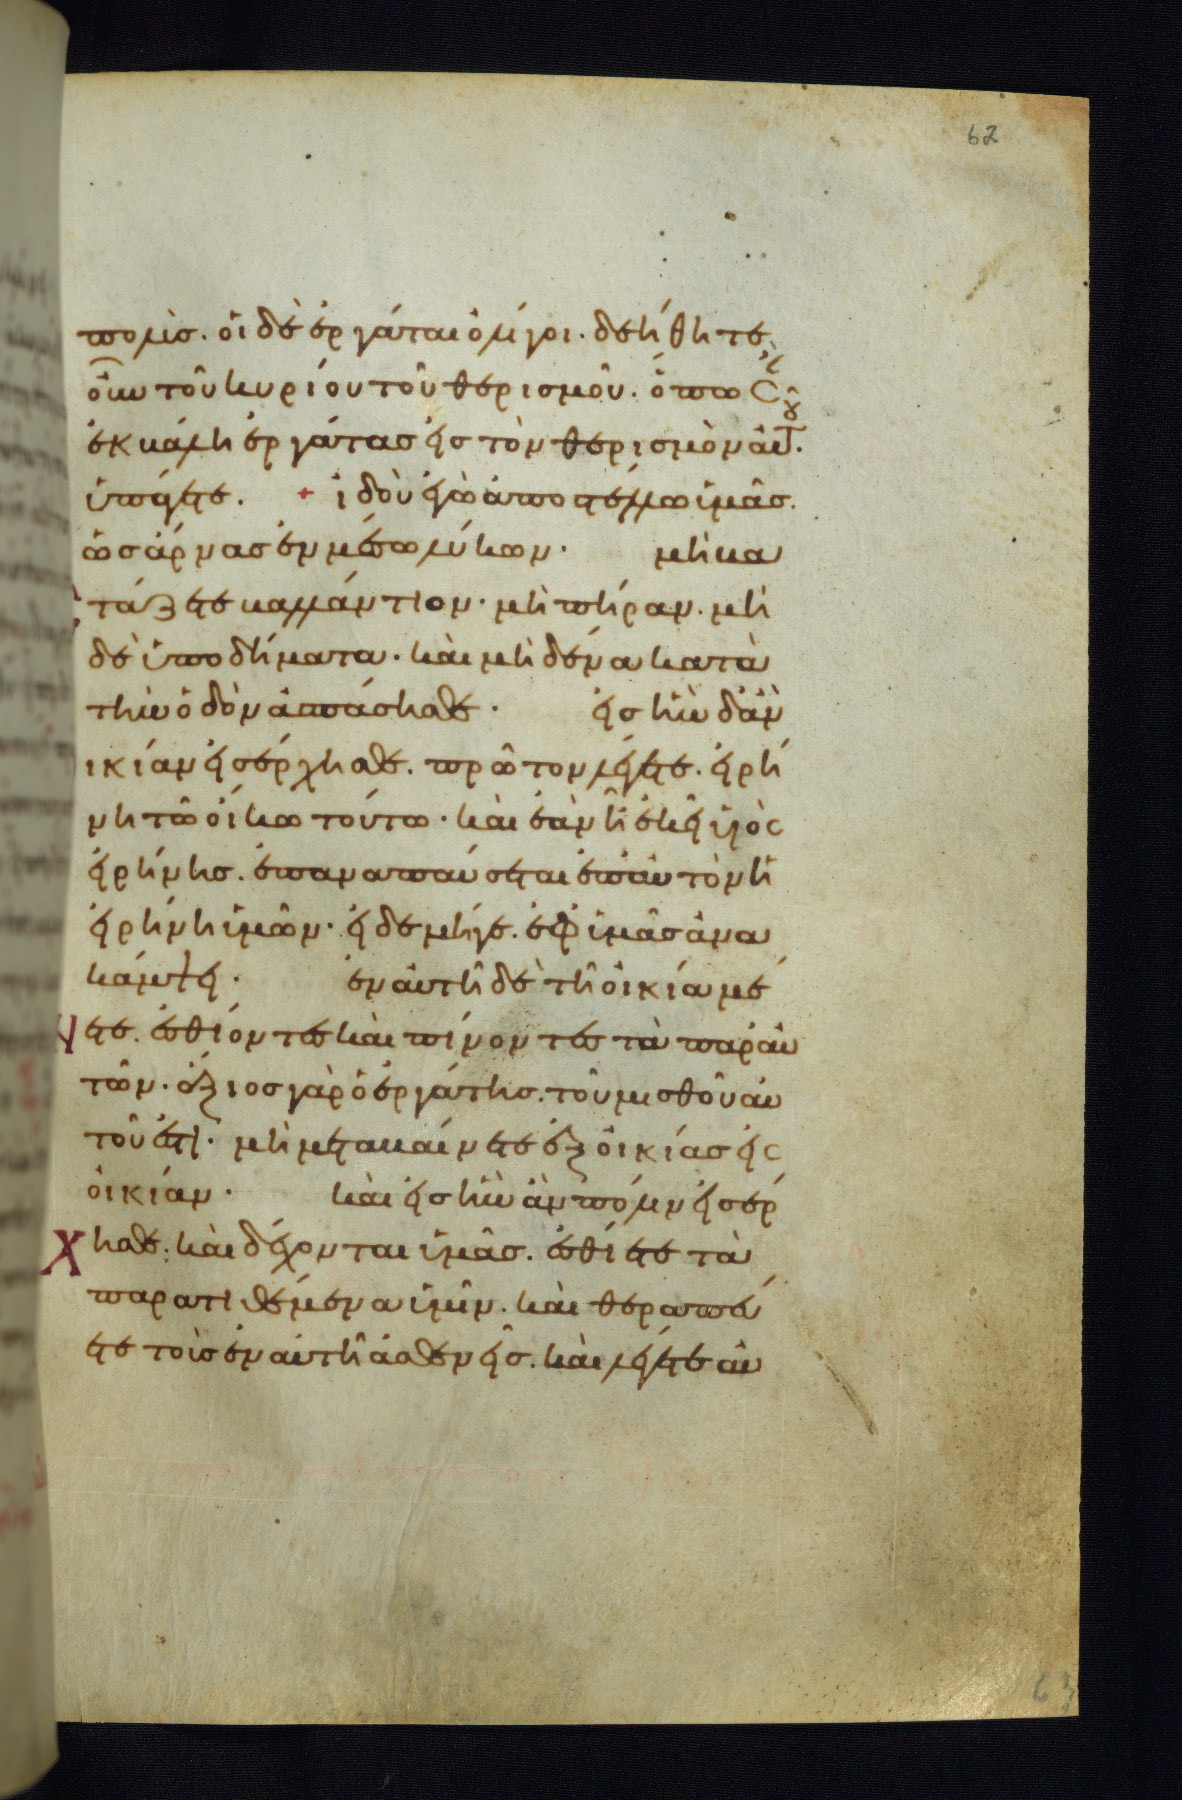 πολὺς. οἱ δὲ ἐργάται ὀλίγοι. δεήθητε
οὖν τοῦ κυρίου τοῦ θερισμοῦ. ὅπως
ἐκβάλη ἐργάτας εἰς τὸν θερισμὸν αὐτ.
ὑπάγετε. + ἰδοὺ ἐγὼ ἀποστέλλω ὑμᾶς.
ὡς ἄρνας ἐν μέσω λύκων. μὴ βα
στάζετε βαλλάντιον. μὴ πήραν. μὴ
δὲ ὑποδήματα. καὶ μηδένα κατὰ
τὴν ὁδὸν ἀσπάσησθε. εἰς ἣν δ' ἂν
ικίαν εἰσέρχησθε. πρῶτον λέγετε. εἰρή
νη τῶ οἴκω τούτω. καὶ ἐὰν ἦ ἐκεῖ υἱὸς
εἰρήνης. ἐπαναπαύσεται ἐπ' αὐτὸν ἡ
εἰρήνη ὑμῶν. εἰ δὲ μήγε. ἐφ' ὑμᾶς ἀνα
κάμψει. ἐν αὐτῆ δὲ τῆ οἰκία μέ
νετε. ἐσθίοντες καὶ πίνοντες τὰ παρ' αὐ
τῶν. ἄξιος γὰρ ὁ ἐργάτης. τοῦ μισθοῦ αὐ
τοῦ ἐστί. μὴ μεταβαίνετε ἐξ οἰκίας εἰς
οἰκίαν. καὶ εἰς ἣν ἂν πόλιν εἰσέρ
χησθε. καὶ δέχονται ὑμᾶς. ἐσθίετε τὰ
παρατιθέμενα ὑμῖν. καὶ θεραπεύ
ετε τοὺς ἐν αὐτῆ ἀσθενεῖς. καὶ λέγετε αὐ
62
63